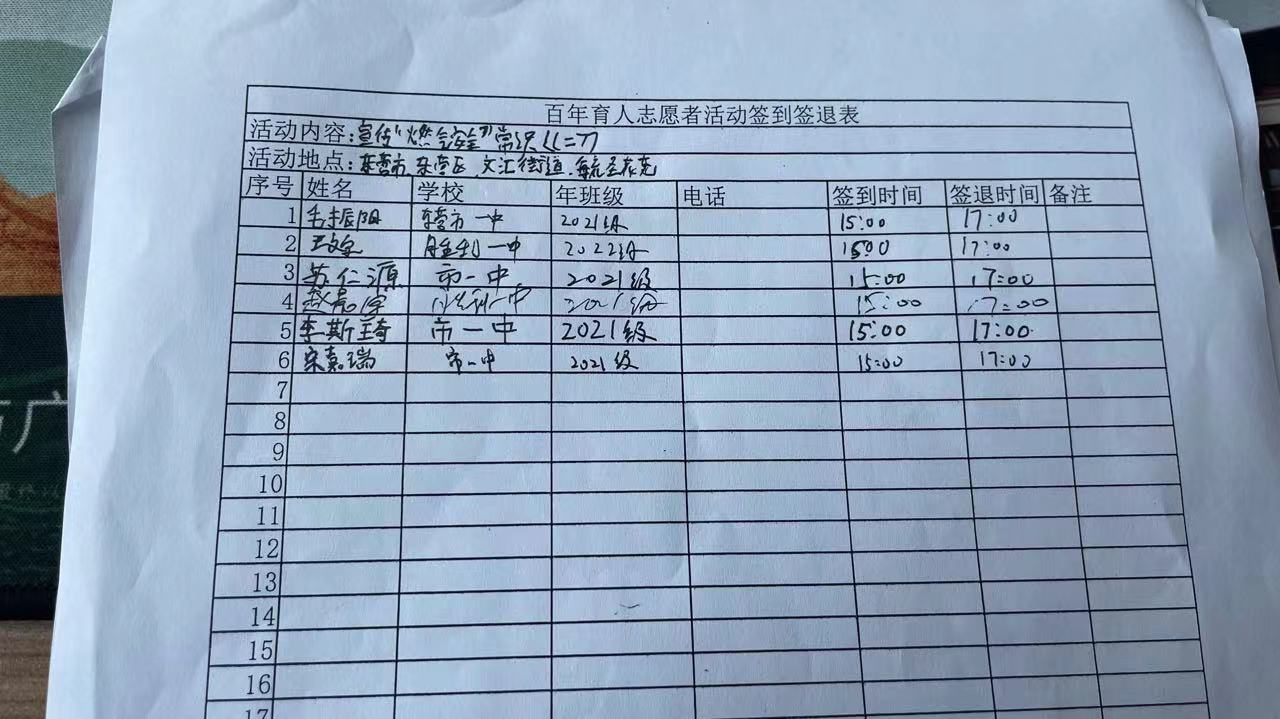 百年育人志愿者活动签到签退表
活动内容:宣传“燃气安全”常识(二)
活动地点:东营市 东营区 文汇街道
序号 姓名 学校 年班级 电话 签到时间 签退时间 备注
1 毛振阳 东营市一中 2021级 15:00 17:00
2 胜利一中 2022级 15:00 17:00
3 苏仁源 市一中 2021级 15:00 17:00
4 胜利一中 2021级 15:00 17:00
5 李斯琦 市一中 2021级 15:00 17:00
6 宋嘉瑞 市一中 2021级 15:00 17:00
7
8
9
10
11
12
13
14
15
16
17
广